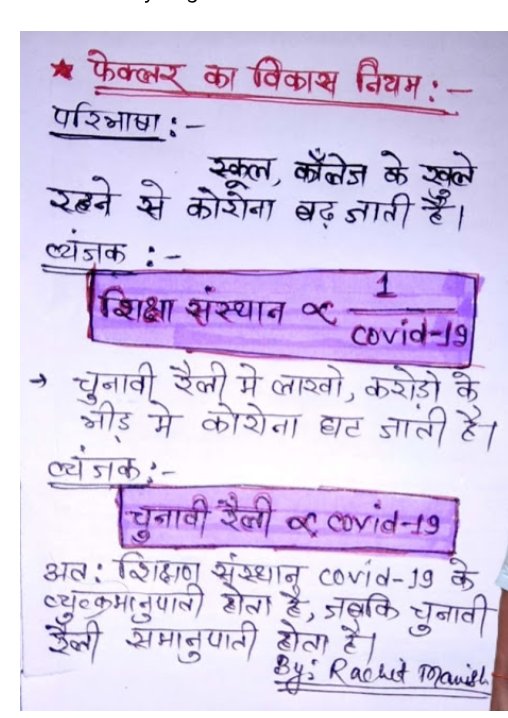 ★ फेक्लर का विकास नियम :-
परिभाषा :-
स्कूल, कॉलेज के खुले
रहने से कोरोना बढ़ जाती है।
व्यंजक :-
शिक्षा संस्थान ∝ 1/covid-19
→ चुनावी रैली मे लाखो, करोडो के
भीड़ मे कोरोना घट जाती है।
व्यंजक :-
चुनावी रैली ∝ covid-19
अत: शिक्षण संस्थान covid-19 के
व्युत्क्रमानुपाती होता है, जबकि चुनावी
रैली समानुपाती होता है।
By: Rachit Manish